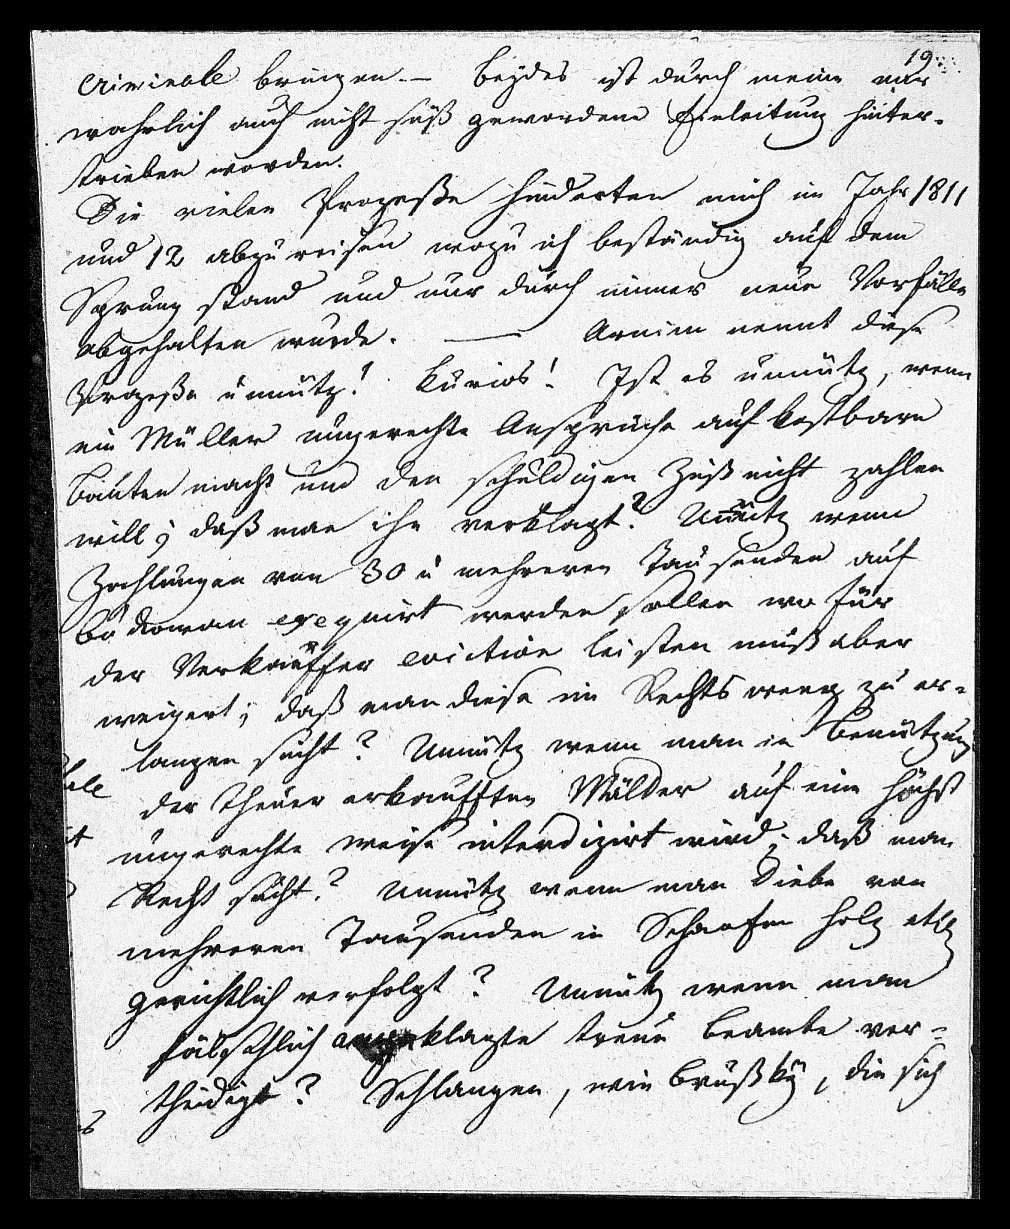 19.
Criminale bringen. — Beÿdes ist durch meine mir
wahrlich auch nicht süß gewordene Einleitung hinter-
trieben worden.
Die vielen Prozeße hinderten mich im Jahr 1811
und 12 abzureisen wozu ich beständig auf dem
Sprung stand und nur durch immer neue Vorfälle
abgehalten wurde. — Arnim nennt diese
Prozeße unnütz! Kurios! Ist es unnütz, wenn
ein Müller ungerechte Ansprüche auf kostbare
Bauten macht und den schuldigen Zinß nicht zahlen
will; daß man ihn verklagt? Unnütz wenn
Zahlungen von 30 u mehreren Tausenden auf
Bukowan exequirt werden sollen wofür
der Verkäuffer eviction leisten muß aber
weigert; daß man diese im Rechts weeg zu er-
langen sucht? Unnütz wenn man in Benützung
der theuer erkaufften Wälder auf eine höchst
ungerechte weise interdizirt wird; daß man
Recht sucht? Unnütz wenn man Diebe von
mehreren Tausenden in Schaafen holz etc
gerichtlich verfolgt? Unnütz wenn man
fälschlich angeklagte treue Beamte ver-
theidigt? Schlangen, wie Brußkÿ, die sich